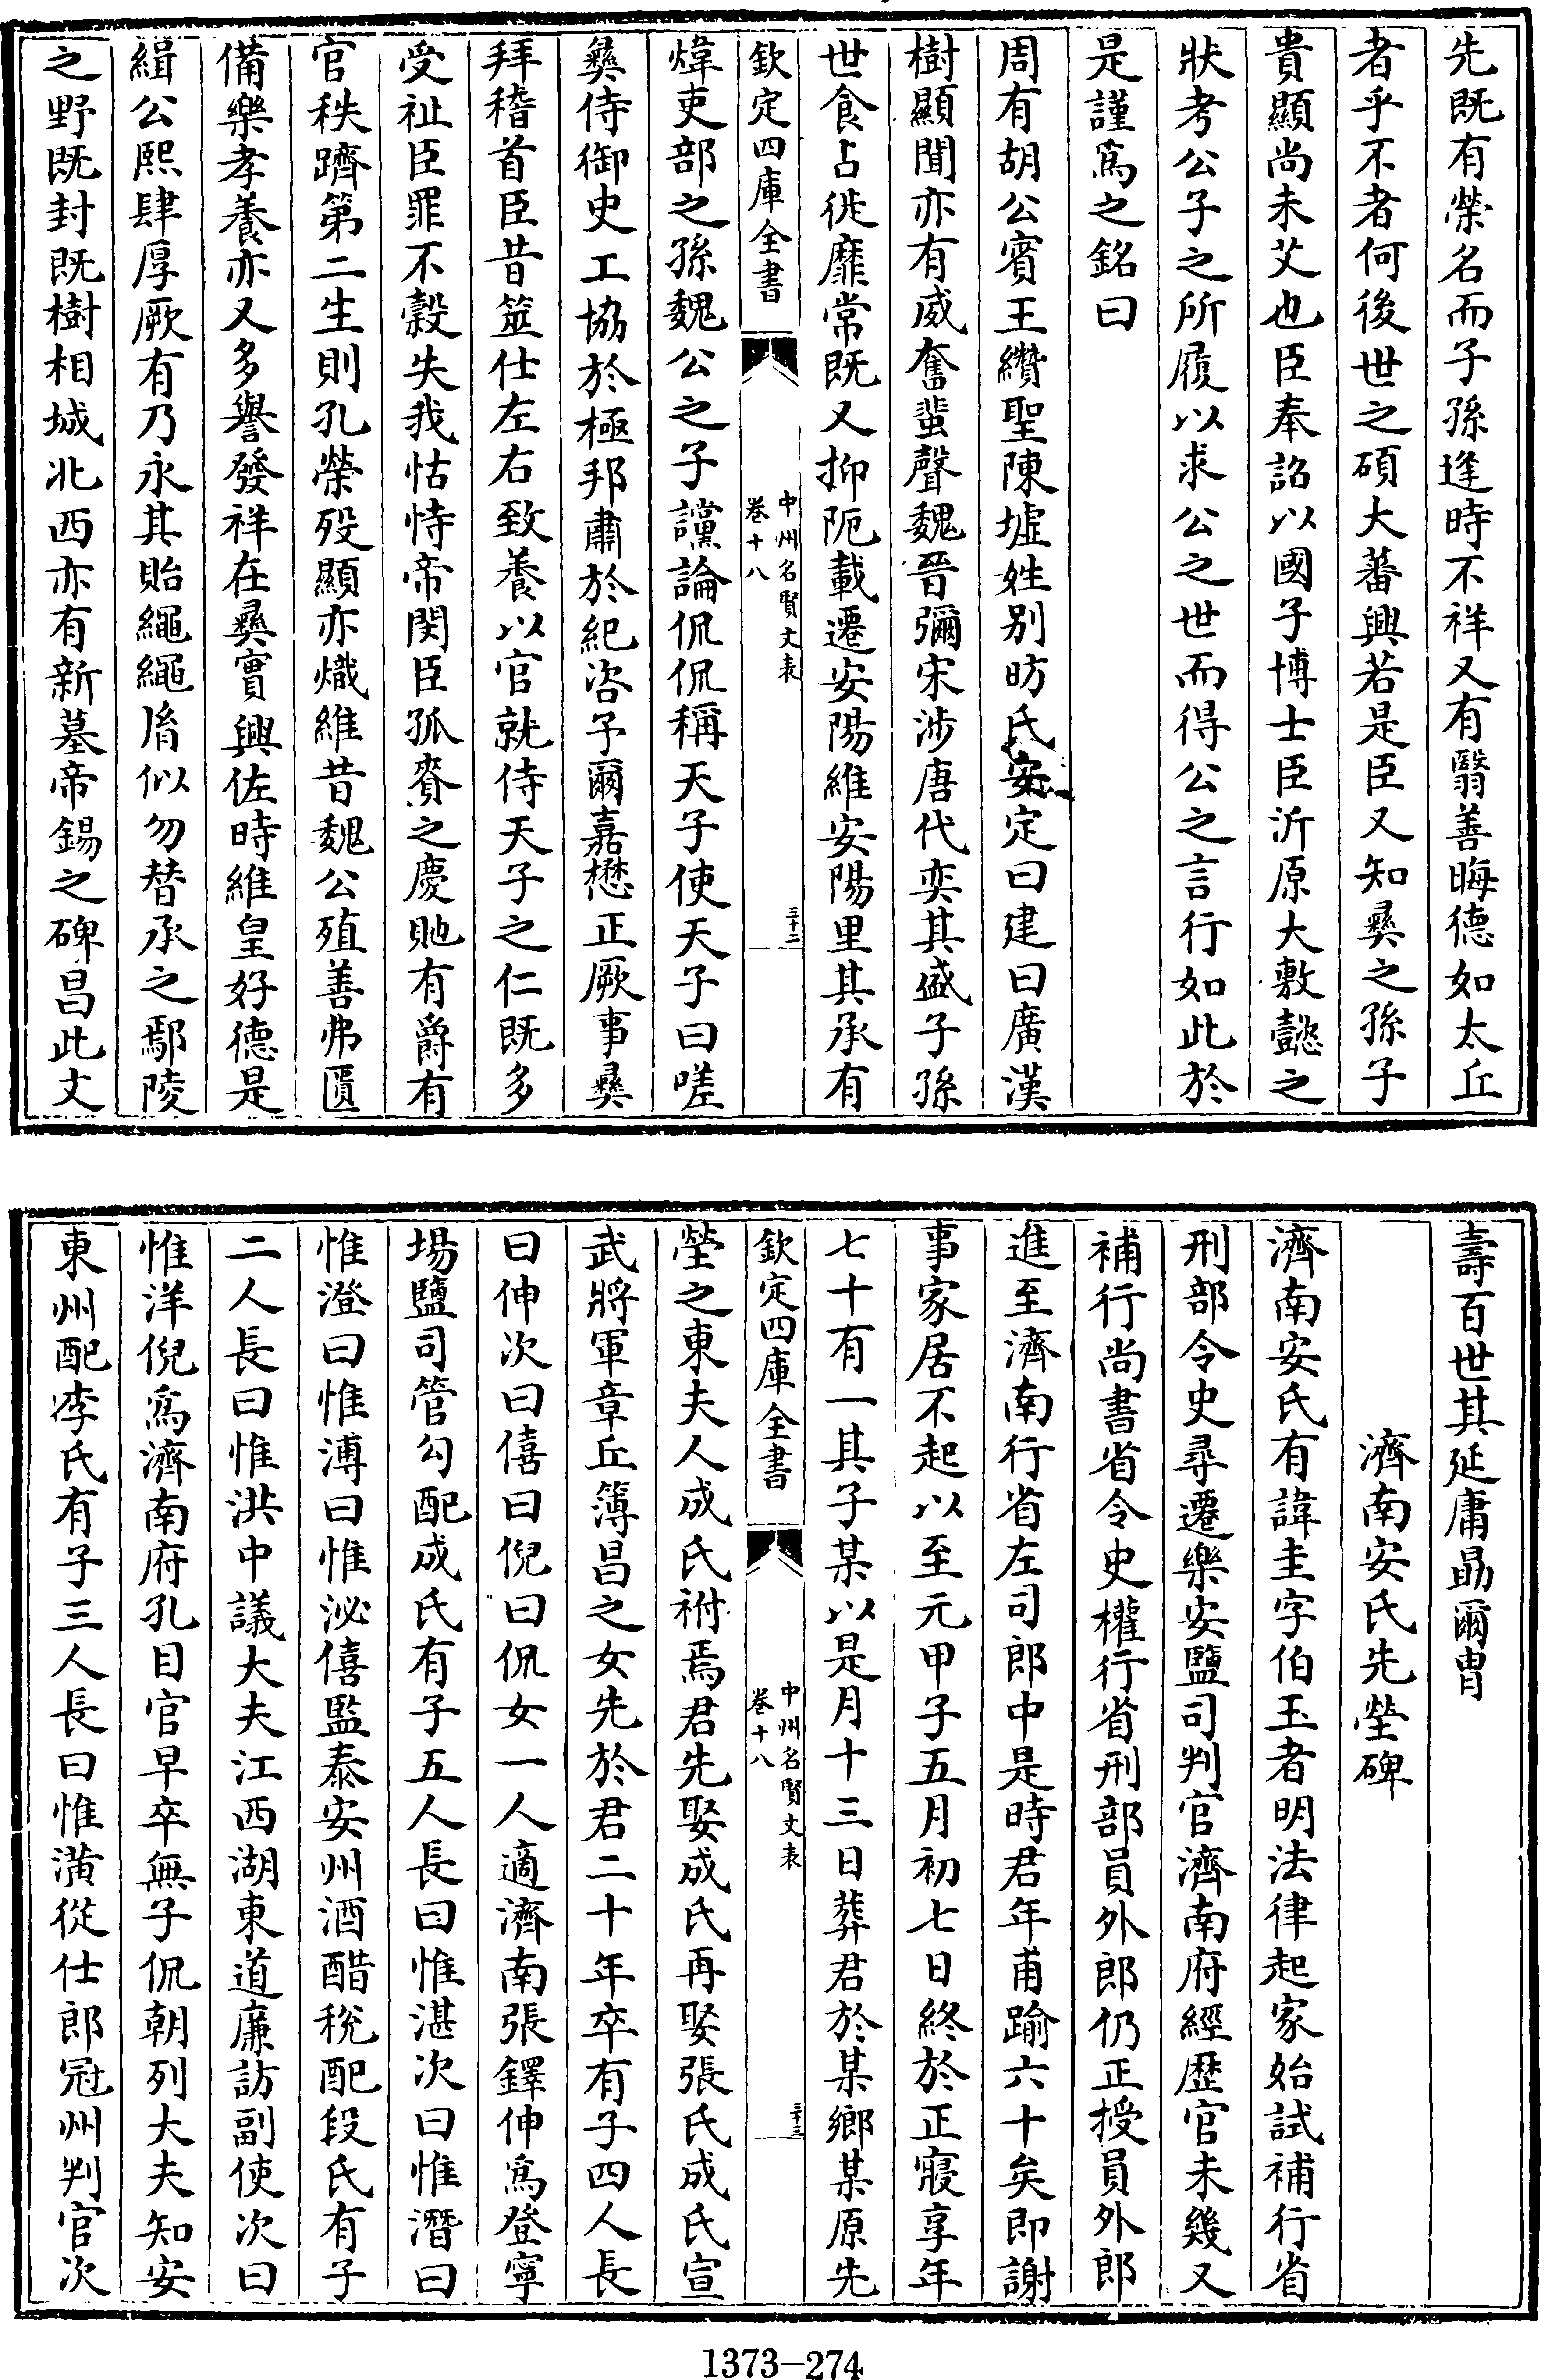 先既有榮名而子孫逢時不祥又有翳善晦德如太丘
者乎不者何後世之碩大蕃興若是臣又知彝之孫子
貴顯尚未艾也臣奉詔以國子博士臣沂原大敷懿之
狀考公子之所履以求公之世而得公之言行如此於
是謹爲之銘曰
周有胡公賓王纘聖陳墟姓别昉氏安定曰建曰廣漢
樹顯聞亦有威奮蜚聲魏晉彌宋涉唐代奕其盛子孫
世食占徙靡常既又抑阨載遷安陽維安陽里其承有
欽定四庫全書
中州名賢文表
卷十八
三十二
煒吏部之孫魏公之子讜論侃侃稱天子使天子曰嗟
彝侍御史工協於極邦肅於紀咨予爾嘉懋正厥事彝
拜稽首臣昔筮仕左右致養以官就侍天子之仁既多
受祉臣罪不穀失我怙恃帝閔臣孤賚之慶貤有爵有
官秩躋第二生則孔榮殁顯亦熾維昔魏公殖善弗匱
備樂孝養亦又多譽發祥在彝實興佐時維皇好德是
緝公熙肆厚厥有乃永其貽繩繩胤似勿替承之鄢陵
之野既封既樹相城北西亦有新墓帝錫之碑昌此文
壽百世其延庸勗爾冑
濟南安氏先塋碑
濟南安氏有諱圭字伯玉者明法律起家始試補行省
刑部令史尋遷樂安鹽司判官濟南府經歷官未幾又
補行尚書省令史權行省刑部員外郎仍正授員外郎
進至濟南行省左司郎中是時君年甫踰六十矣即謝
事家居不起以至元甲子五月初七日終於正寢享年
七十有一其子某以是月十三日葬君於某鄉某原先
欽定四庫全書
中州名賢文表
卷十八
三十三
塋之東夫人成氏祔焉君先娶成氏再娶張氏成氏宣
武將軍章丘簿昌之女先於君二十年卒有子四人長
曰伸次曰僖曰倪曰侃女一人適濟南張鐸伸爲登寧
場鹽司管勾配成氏有子五人長曰惟湛次曰惟潛曰
惟澄曰惟溥曰惟泌僖監泰安州酒醋稅配段氏有子
二人長曰惟洪中議大夫江西湖東道廉訪副使次曰
惟洋倪爲濟南府孔目官早卒無子侃朝列大夫知安
東州配李氏有子三人長曰惟潢從仕郎冠州判官次
1373-274